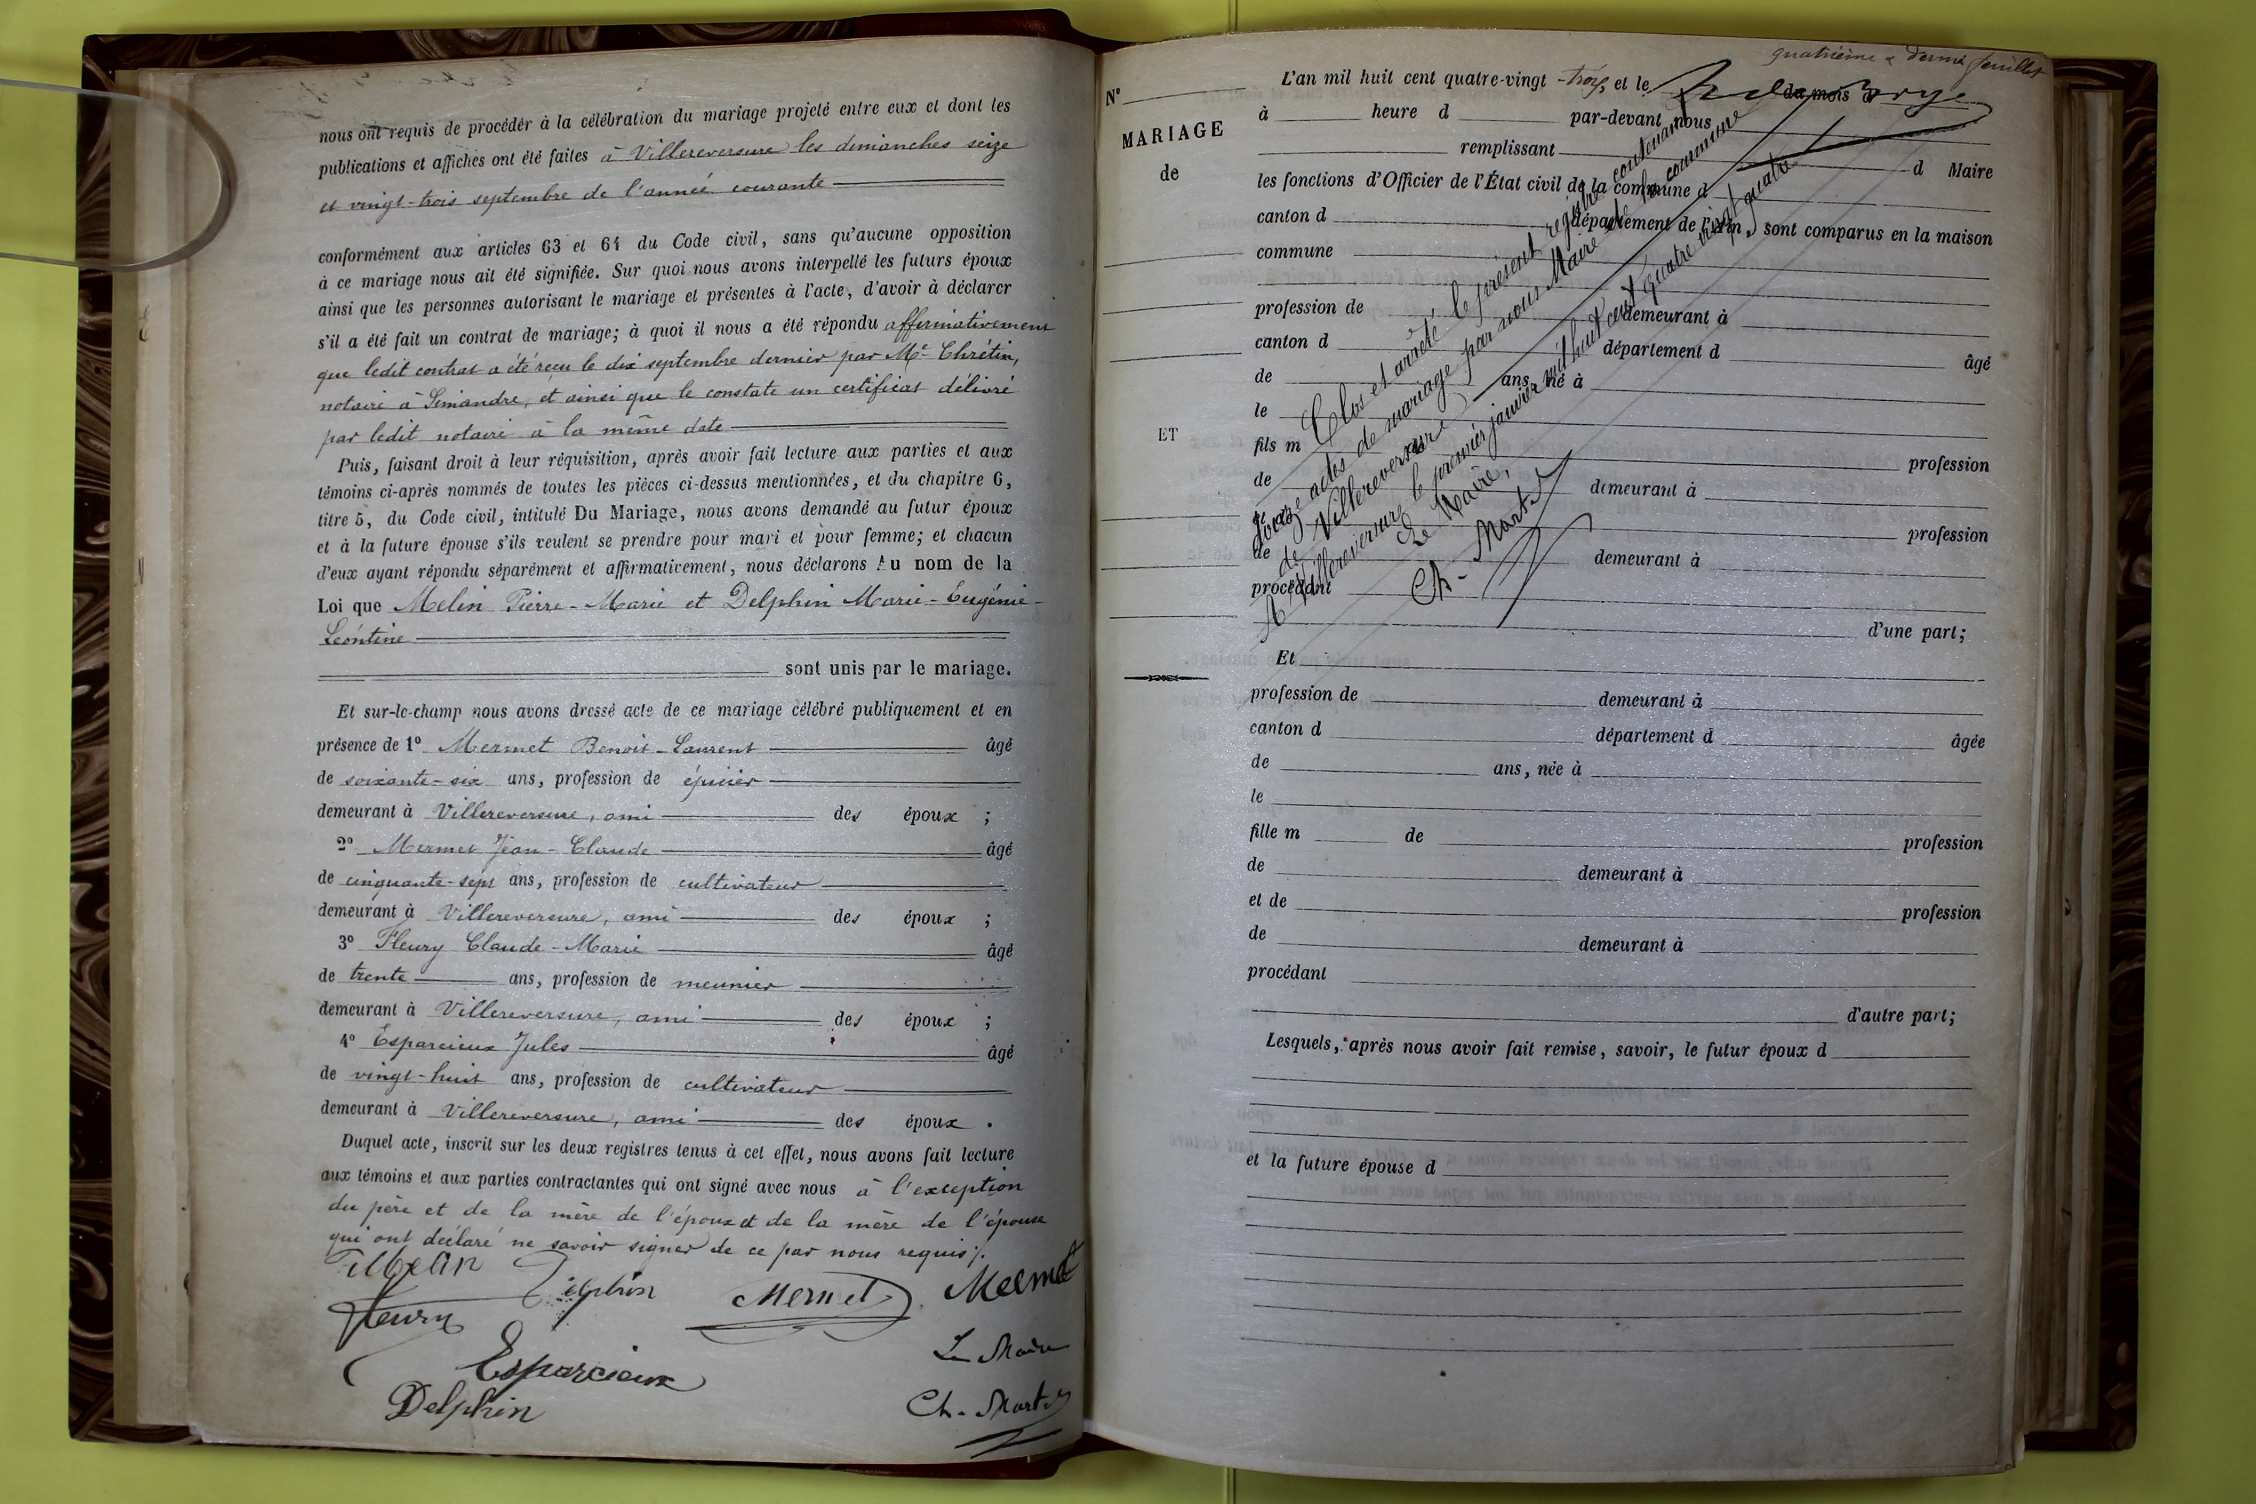 nous ont requis de procéder à la célébration du mariage projeté entre eux et dont les
publications et affiches ont été faites à Villereversure les dimanches seize
et vingt-trois septembre de l'année courante
conformément aux articles 63 et 64 du Code civil, sans qu'aucune opposition
à ce mariage nous ait été signifiée. Sur quoi nous avons interpellé les futurs époux
ainsi que les personnes autorisant le mariage et présentes à l'acte, d'avoir à déclarer
s'il a été fait un contrat de mariage; à quoi il nous a été répondu affirmativement
que ledit contrat a été reçu le dix septembre dernier par Me Chrétin,
notaire à Simandre, et ainsi que le constate un certificat délivré
par ledit notaire à la même date
Puis, faisant droit à leur réquisition, après avoir fait lecture aux parties et aux
témoins ci-après nommés de toutes les pièces ci-dessus mentionnées, et du chapitre 6,
titre 5, du Code civil, intitulé Du Mariage, nous avons demandé au futur époux
et à la future épouse s'ils veulent se prendre pour mari et pour femme; et chacun
d'eux ayant répondu séparément et affirmativement, nous déclarons Au nom de la
Loi que Melin Pierre-Marie et Delphin Marie-Eugénie-
Léontine
sont unis par le mariage.
Et sur-le-champ nous avons dressé acte de ce mariage célébré publiquement et en
présence de 1° Mermet Benoit-Laurent âgé
de soixante-six ans, profession de épicier
demeurant à Villereversure, ami des époux ;
2° Mermet Jean-Claude âgé
de cinquante-sept ans, profession de cultivateur
demeurant à Villereversure, ami des époux ;
3° Fleury Claude-Marie âgé
de trente ans, profession de meunier
demeurant à Villereversure, ami des époux ;
4° Esparcieux Jules âgé
de vingt-huit ans, profession de cultivateur
demeurant à Villereversure, ami des époux .
Duquel acte, inscrit sur les deux registres tenus à cet effet, nous avons fait lecture
aux témoins et aux parties contractantes qui ont signé avec nous à l'exception
du père et de la mère de l'époux et de la mère de l'épouse
qui ont déclaré ne savoir signer de ce par nous requis.
Melin Delphin Mermet Mermet
Fleury
Esparcieux
Le Maire
Delphin
Ch. Martin
quatrième & dernier feuillet
N°
MARIAGE
de
ET
L'an mil huit cent quatre-vingt-trois, et le du mois d
à heure d par-devant nous
remplissant d Maire
les fonctions d'Officier de l'État civil de la commune d
canton d département de l'Ain, sont comparus en la maison
commune
profession de demeurant à
canton d département d âgé
de ans, né à
le
fils m
profession
de demeurant à
et de profession
de demeurant à
procédant
d'une part;
Et
profession de demeurant à
canton d département d âgée
de ans, née à
le
fille m de profession
de demeurant à
et de profession
de demeurant à
procédant
d'autre part;
Lesquels, après nous avoir fait remise, savoir, le futur époux d
et la future épouse d
Clos et arrêté le présent registre contenant
actes de mariage par nous Maire de la commune
de Villereversure
A Villereversure, le premier janvier mil huit cent quatre vingt quatre
Le Maire,
Ch. Martin